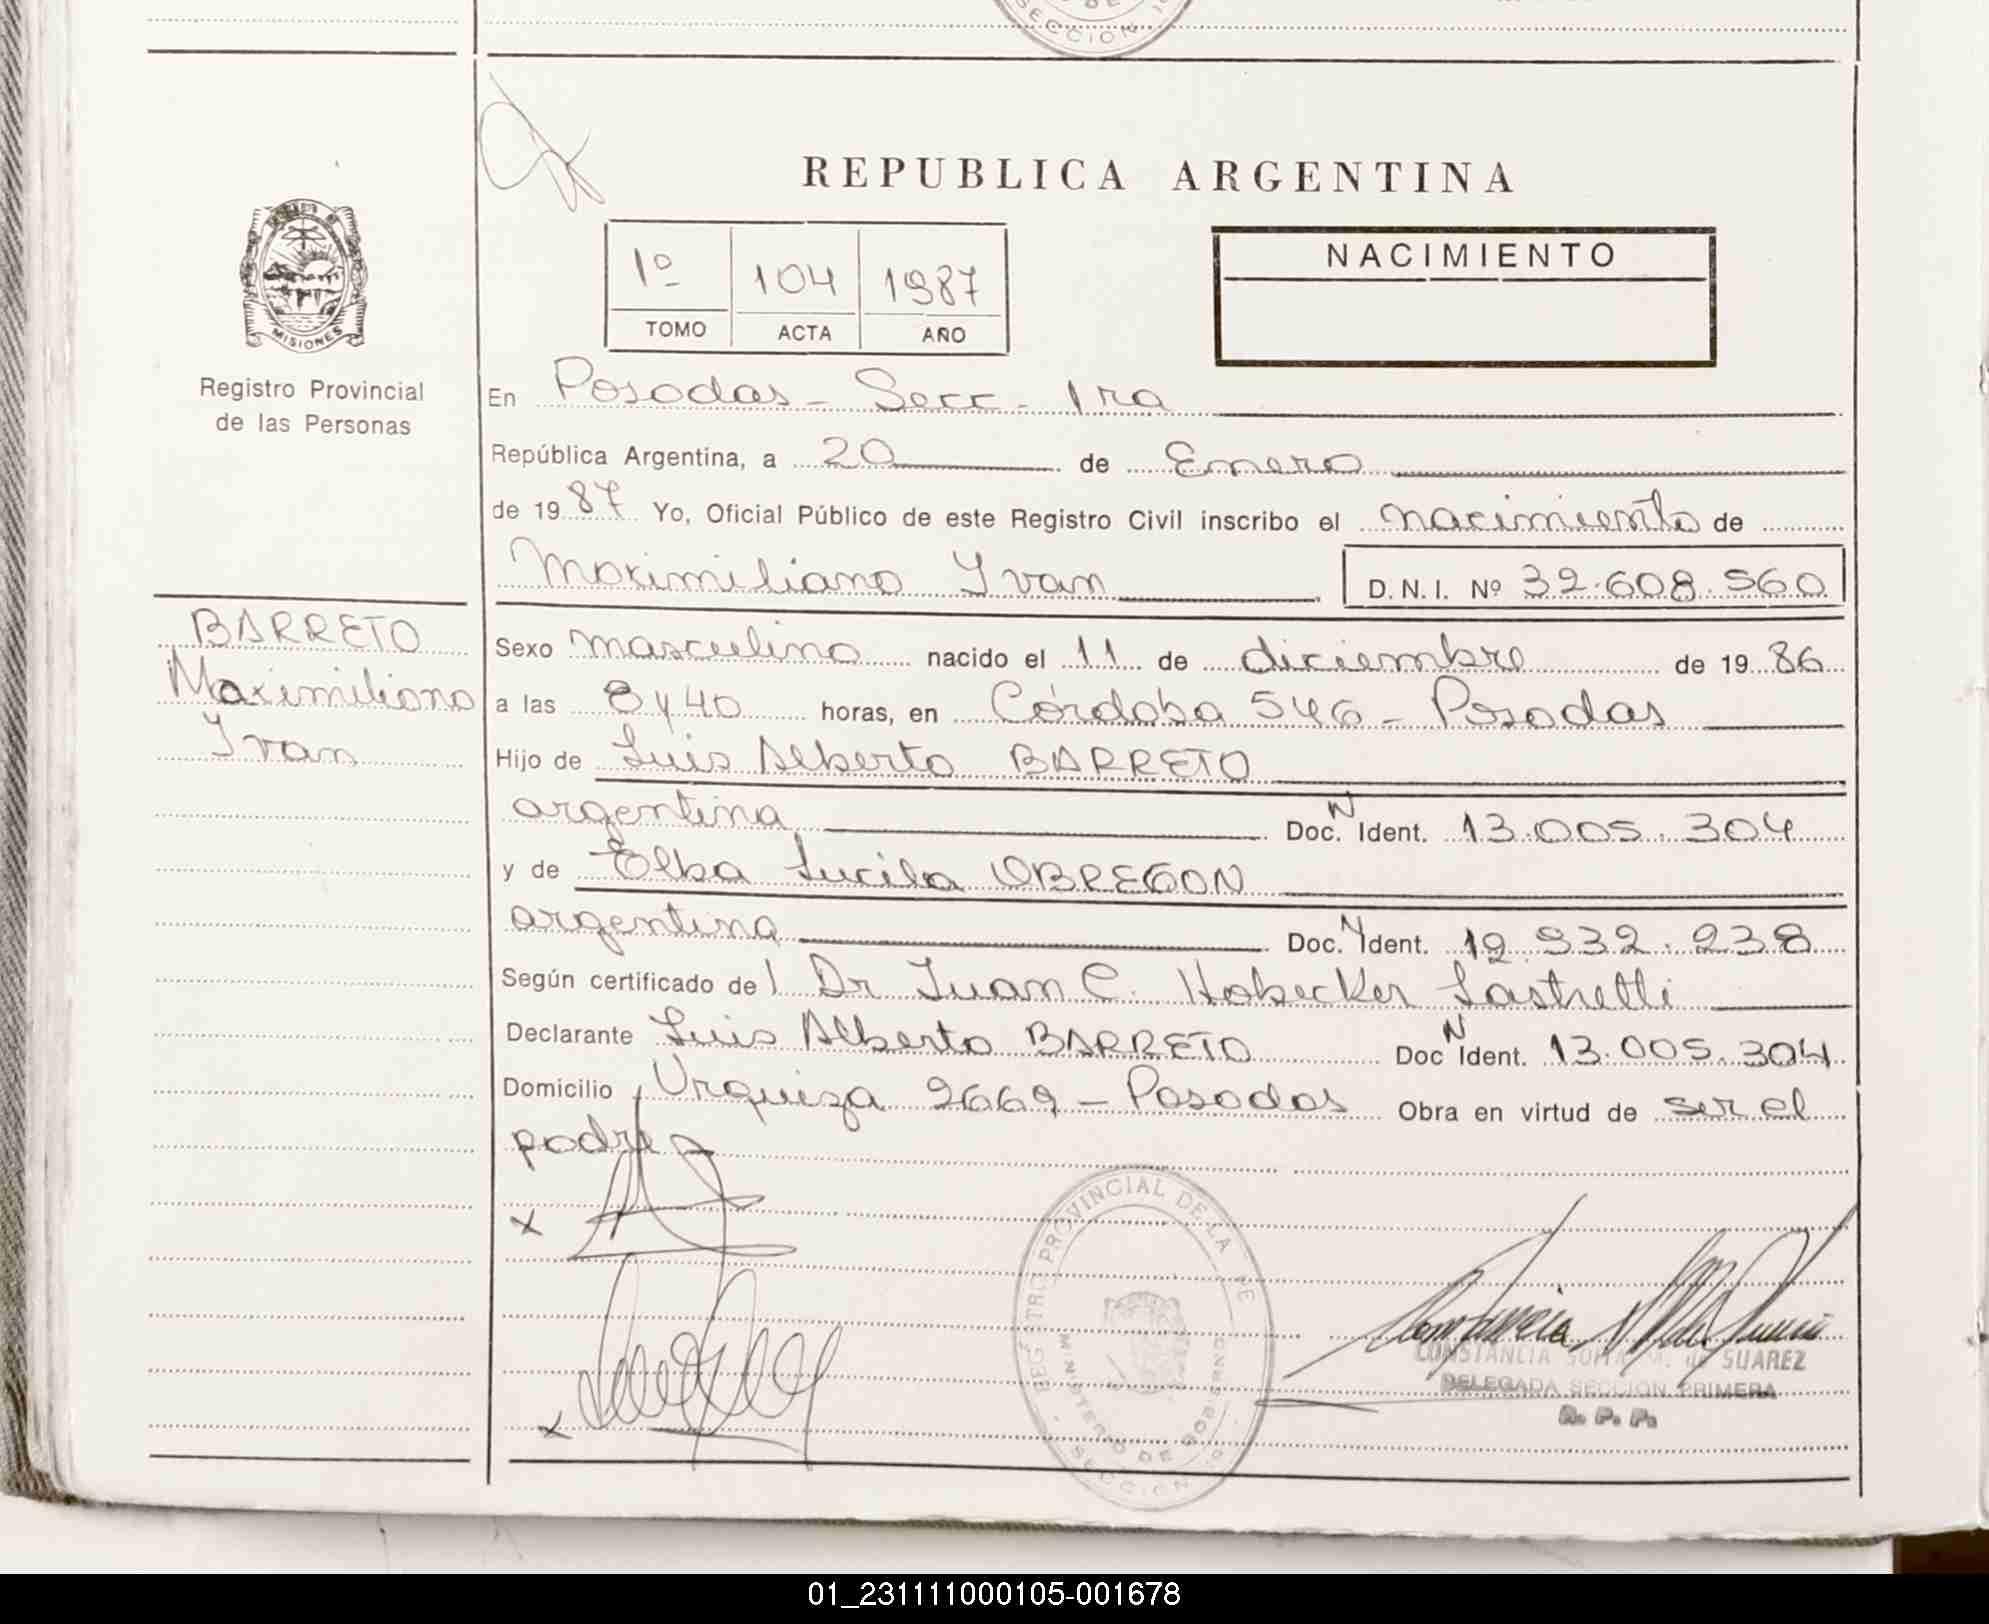 SECCION
REPUBLICA ARGENTINA
1º 104 1987
TOMO ACTA AÑO
NACIMIENTO
MISIONES
Registro Provincial
de las Personas
En Posadas - Secc - 1ra
República Argentina, a 20 de Enero
de 1987 Yo, Oficial Público de este Registro Civil inscribo el nacimiento de
Maximiliano Ivan D.N.I. Nº 32.608.560
BARRETO
Maximiliano
Ivan
Sexo masculino nacido el 11 de diciembre de 1986
a las 8 y 40 horas, en Córdoba 546 - Posadas
Hijo de Luis Alberto BARRETO
argentina Doc. N Ident. 13.005.304
y de Elba Lucila OBREGON
argentina Doc. N Ident. 12.932.238
Según certificado del Dr Juan C. Hobecker Lastretti
Declarante Luis Alberto BARRETO Doc N Ident. 13.005.304
Domicilio Urquiza 2669 - Posadas Obra en virtud de ser el
padre
x
x
REGISTRO PROVINCIAL DE LA DE
MINISTERIO DE GOBIERNO
SECCION
CONSTANCIA SOFIA M. de SUAREZ
DELEGADA SECCION PRIMERA
R. P. P.
01_231111000105-001678